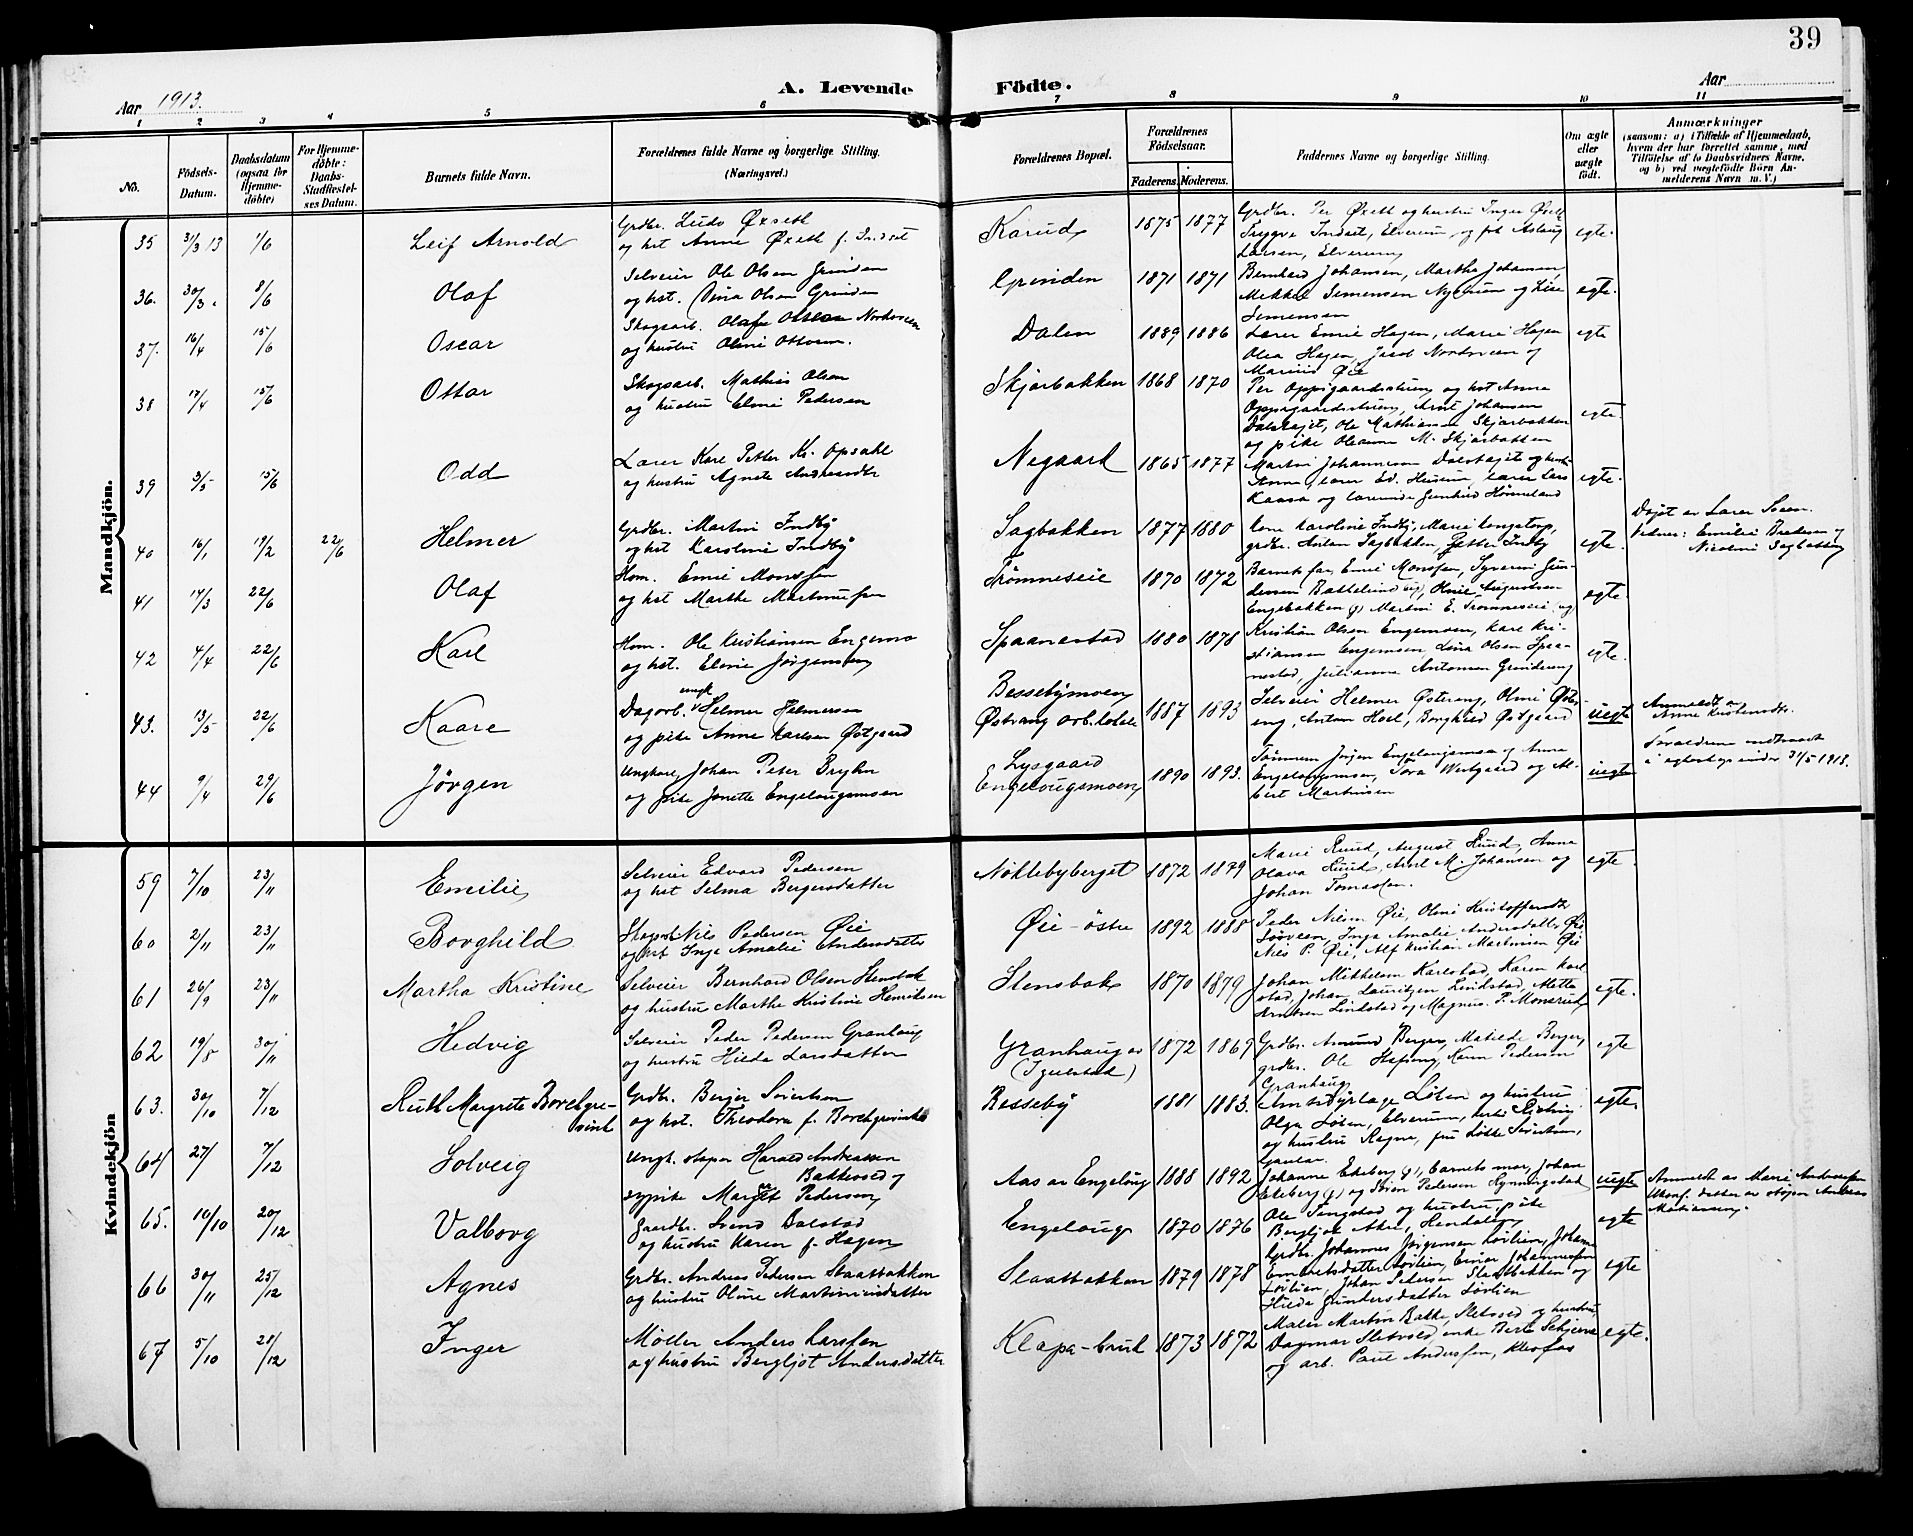 39
A. Levende Födte.
Aar 1913.
Aar
1 2 3 4 5 6 7 8 9 10 11
No.
Födsels-Datum.
Daabsdatum (ogsaa for Hjemme-döbte)
For Hjemme-döbte: Daabs-Stadfæstel-ses Datum.
Barnets fulde Navn.
Forældrenes fulde Navne og borgerlige Stilling.
(Næringsvei.)
Forældrenes Bopæl.
Forældrenes Födselsaar.
Faderens. Moderens.
Faddernes Navne og borgerlige Stilling.
Om ægte eller uægte födt.
Anmærkninger
(saasom: a) i Tilfælde af Hjemmedaab,
hvem der har forrettet samme, med
Tilföielse af to Daabsvidners Navne,
og b) ved uægtefödte Börn An-
melderens Navn m. V.)
Mandkjön.
35 31/3 13 1/6 Leif Arnold
Grdbr. Ludv Øxseth
og hst Anne Øxeth f. Indset
Karud 1875 1877
Grdbr. Per Øxeth og hustru Inger Øxeth
Trygve Indset, Elverum, og frk Aslaug
Larsen, Elverum
egte.
36. 30/3. 8/6 Olaf
Selveier Ole Olsen Grinden
og hst. Dina Olsen Grinden
Grinden 1871 1871
Bernhard Johansen, Marthe Johansen
Mikkel Simensen Nyrud og Lise
Simensen
egte.
37. 16/4 15/6 Oscar
Skogsarb. Olaf Ottosen Nordsveen
og hustru Oline Ottosen.
Dalen 1889 1886
Lærer Emil Hagen, Marie Hagen
Olea Hagen, Jacob Nordsveen og
Marius Øie
egte
38 17/4 15/6 Ottar
Skogsarb. Mathis Olsen
og hustru Eline Pedersen
Skjærbakken 1868 1870
Per Oppigaardsstuen og hst Anna
Oppigaardsstuen, Arnt Johansen
Dalshøjet, Ole Mathiasen Skjærbakken
og pike Oleanna M. Skjærbakken
egte.
39 3/5 15/6 Odd
Lærer Karl Petter Kr. Opsahl
og hustru Agnete Andreasdtr
Negaard 1865 1877
Martin Johannesen Dalshøjet og hustru
Anna, lærer Ed. Hansen, lærer Lars
Kaasa og lærerinde Gunhild Hommeland
egte.
40 16/1 19/2 22/6 Helmer
Grdbr. Martin Indby
og hst Karoline Indby
Sagbakken 1877 1880
Kone Karoline Indby, Marie Longstorp,
grdbr. Anton Sagbakken, Petter Indby
egte.
Døpt av Lærer Soeen.
Vidner: Emilie Bredesen og
Nicoline Sagbakken
41 14/3 22/6 Olaf
Hom. Emil Monssen
og hst Marthe Martinussen
Trømneseie 1870 1872
Barnets far, Emil Monssen, Syverin Gun-
dersen Battelund (g), Oline Augustsen
Engebakken (g) Martin E. Trømneseie og
egte.
42 4/4 22/6 Karl
Hom. Ole Kristiansen Engemo
og hst. Eline Jørgensen
Spaanestad 1880 1878
Kristian Olsen Engemoen, Karl Kri-
stiansen Engemoen, Lina Olsen Spaa-
nestad, Julianna Antonsen Grindereng
egte.
43. 13/5 22/6 Kaare
Dagarb. ungk Helmer Helmersen
og pike Anne Karlsen Østgaard
Bessebymoen
Østvang arb. lokale
1887 1893
Selveier Helmer Østereng, Oline Øste-
eng, Anton Hoel, Borghild Østgaard
uegte
Anmeldt av
Anne Kristensdtr.
44 9/4 29/6 Jørgen
Ungkarl Johan Peter Bryhn
og pike Jonette Engelaugsmoen
Lysgaard
Engelougsmoen
1890 1893.
Tømmerm Jørgen Engelaugsmoen og Anna
Engelaugsmoen, Tora Westgaard og Al-
bert Martinsen
uegte
Foreldrene indtraadt
i egteskap under 31/5 1913.
Kvindekjön
59 7/10 23/11 Emilie
Selveier Edvard Pedersen
og hst Selma Bergersdatter
Nøklebyberget 1872 1879
Marie Ruud, August Ruud, Anna
Olava Ruud, Axel M. Johansen og
Johan Tomassen.
egte.
60 2/11 23/11 Borghild
Skogsarb Nils Pedersen Øie
og hst Inga Amalie Andersdatter
Øie - östre 1892 1888
Peder Nilsen Øie, Oline Kristoffersdtr
Sørveen, Inga Amalie Andersdatter Øie
Nils P. Øie, Alf Kristian Martinsen Øie
61 26/9 23/11 Martha Kristine
Selveier Bernhard Olsen Stensbak
og hustru Marthe Kristine Henriksen
Stensbak 1870 1879
Johan Mikkelsen Karlstad, Karen Karl
stad, Johan Lauritzen Lindstad, Mette
Arntsen Lindstad og Magnus P. Monsrud
egte.
62 19/8 30/11 Hedvig
Selveier Peder Pedersen Granhaug
og hustru Hilda Larsdatter
Granhaug av
(Igelstad)
1872 1869
Grdbr. Amund Berger, Matilde Berger,
grdbr. Ole Hesseng, Karen Pedersen
Granhaug
egte
63. 30/10 7/12 Ruth Margrete Borchgre-
vink
Grdbr. Berger Sivertsen
og hst. Theodora f. Borchgrevink
Besseby 1881 1883.
Amtsdyrlæge Løken og hustru
Olga Løken, Elverum, 
og hustru Ragna, fru Lotte Sivertsen,
Gaular
egte.
64 27/ 7/12 Solveig
Ungk. støper Harald Andreassen
Bakkevold og
pike Margit Pedersen
Aas av Engelaug 1888 1892
Johanne Ekeberg (g), barnets mor, Johan
Ekeberg (g) og Søren Pedersen Kynningstad
uegte
Anmeldt av Marie Andreassen
Ukonf. datter av støper Andreas
Mathiassen.
65. 10/10 20/12 Valborg
Gaardbr. Svend Dalstad
og hustru Karen f. Hagen
Engelaug 1870 1876
Ole Tingstad og hustru, pike
Bergljot Aker, Hendalen
egte
66 30/11 25/12 Agnes
Grdbr. Andreas Pedersen Slaatbakken
og hustru Oline Martiniusdatter
Slaatbakken 1879 1878
Grdbr. Johannes Jørgensen Løvlien, Johanne
Embretsdatter Løvlien, Einar Johannessen
Løvlien, Johan Pedersen Slaatbakken og
Hilda Gundersdatter Løvlien
egte
67 5/10 28/12 Inger
Møller Anders Larssen
og hustru Bergljot Andersdatter
Klæpa-bruk 1873 1872
Maler Martin Bakke, Sletvold og hustru,
Dagmar Sletvold, enke Berte Skjerve
og arb. Paul Anderssen, Kleofas
egte.